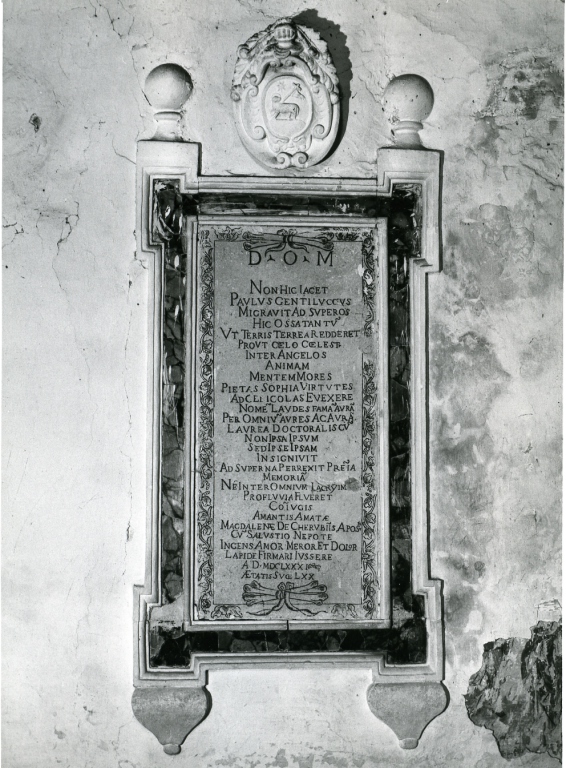 D·O·M
NON HIC IACET
PAVLVS GENTILVCCVS
MIGRAVIT AD SVPEROS
HIC OSSA TANTV̄
VT TERRIS TERREA REDDERET
PROVT CŒLO CŒLEST
INTER ANGELOS
ANIMAM
MENTEM MORES
PIETAS SOPHIA VIRTVTES
AD CLIICOLAS EVEXERE
NOME LAVDES FAMA AVRÃ
PER OMNIV̄ AVRES AC AVRÃ
LAVREA DOCTORALIS CV
NON IPSA IPSVM
SED IPSE IPSAM
INSIGNIVIT
AD SVPERNA PERREXIT
MEMORIÃ
NE INTER OMNIVM
PROFLVVIA FLVERET
COIVGIS
AMANTIS AMATÆ
MAGDALENÆ DE CHERVBIIS APOS
CV̄ SALVSTIO NEPOTE
INGENS AMOR MEROR ET DOLOR
LAPIDE FIRMARI IVSSERE
A D· MDCLXXX
ÆTATIS SVÆ LXX